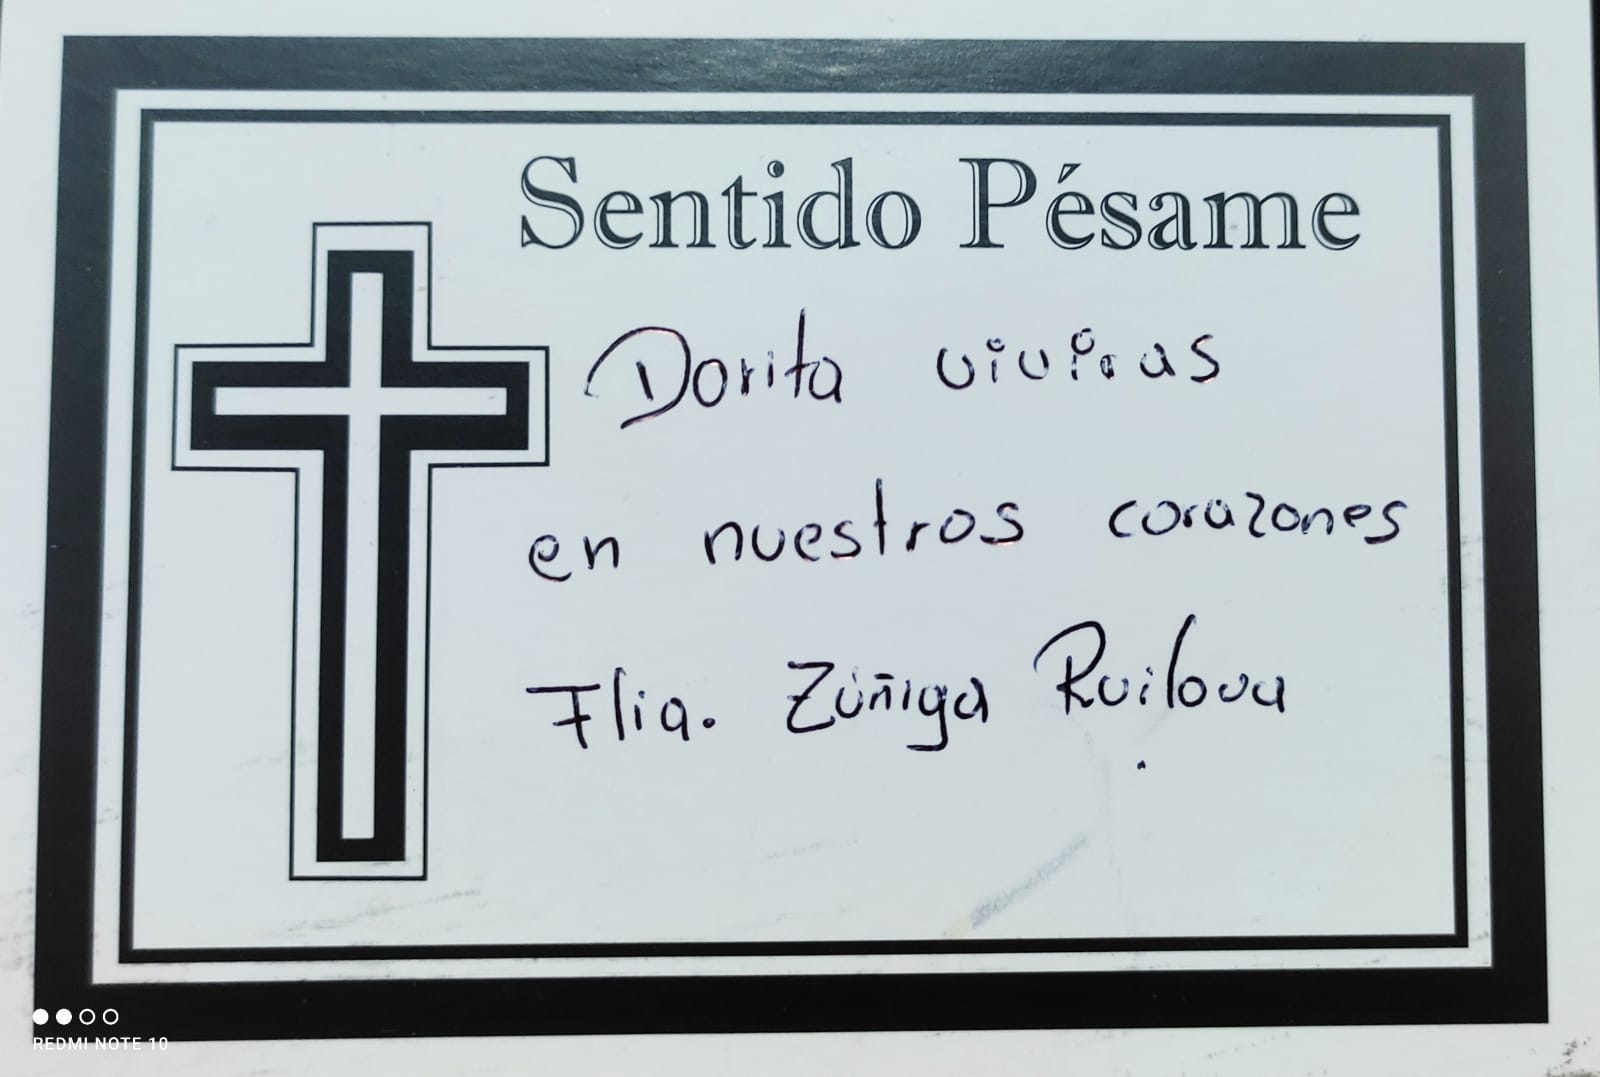 Sentido Pésame
Dorita viviras
en nuestros corazones
Flia. Zúñiga Ruilova
REDMI NOTE 10